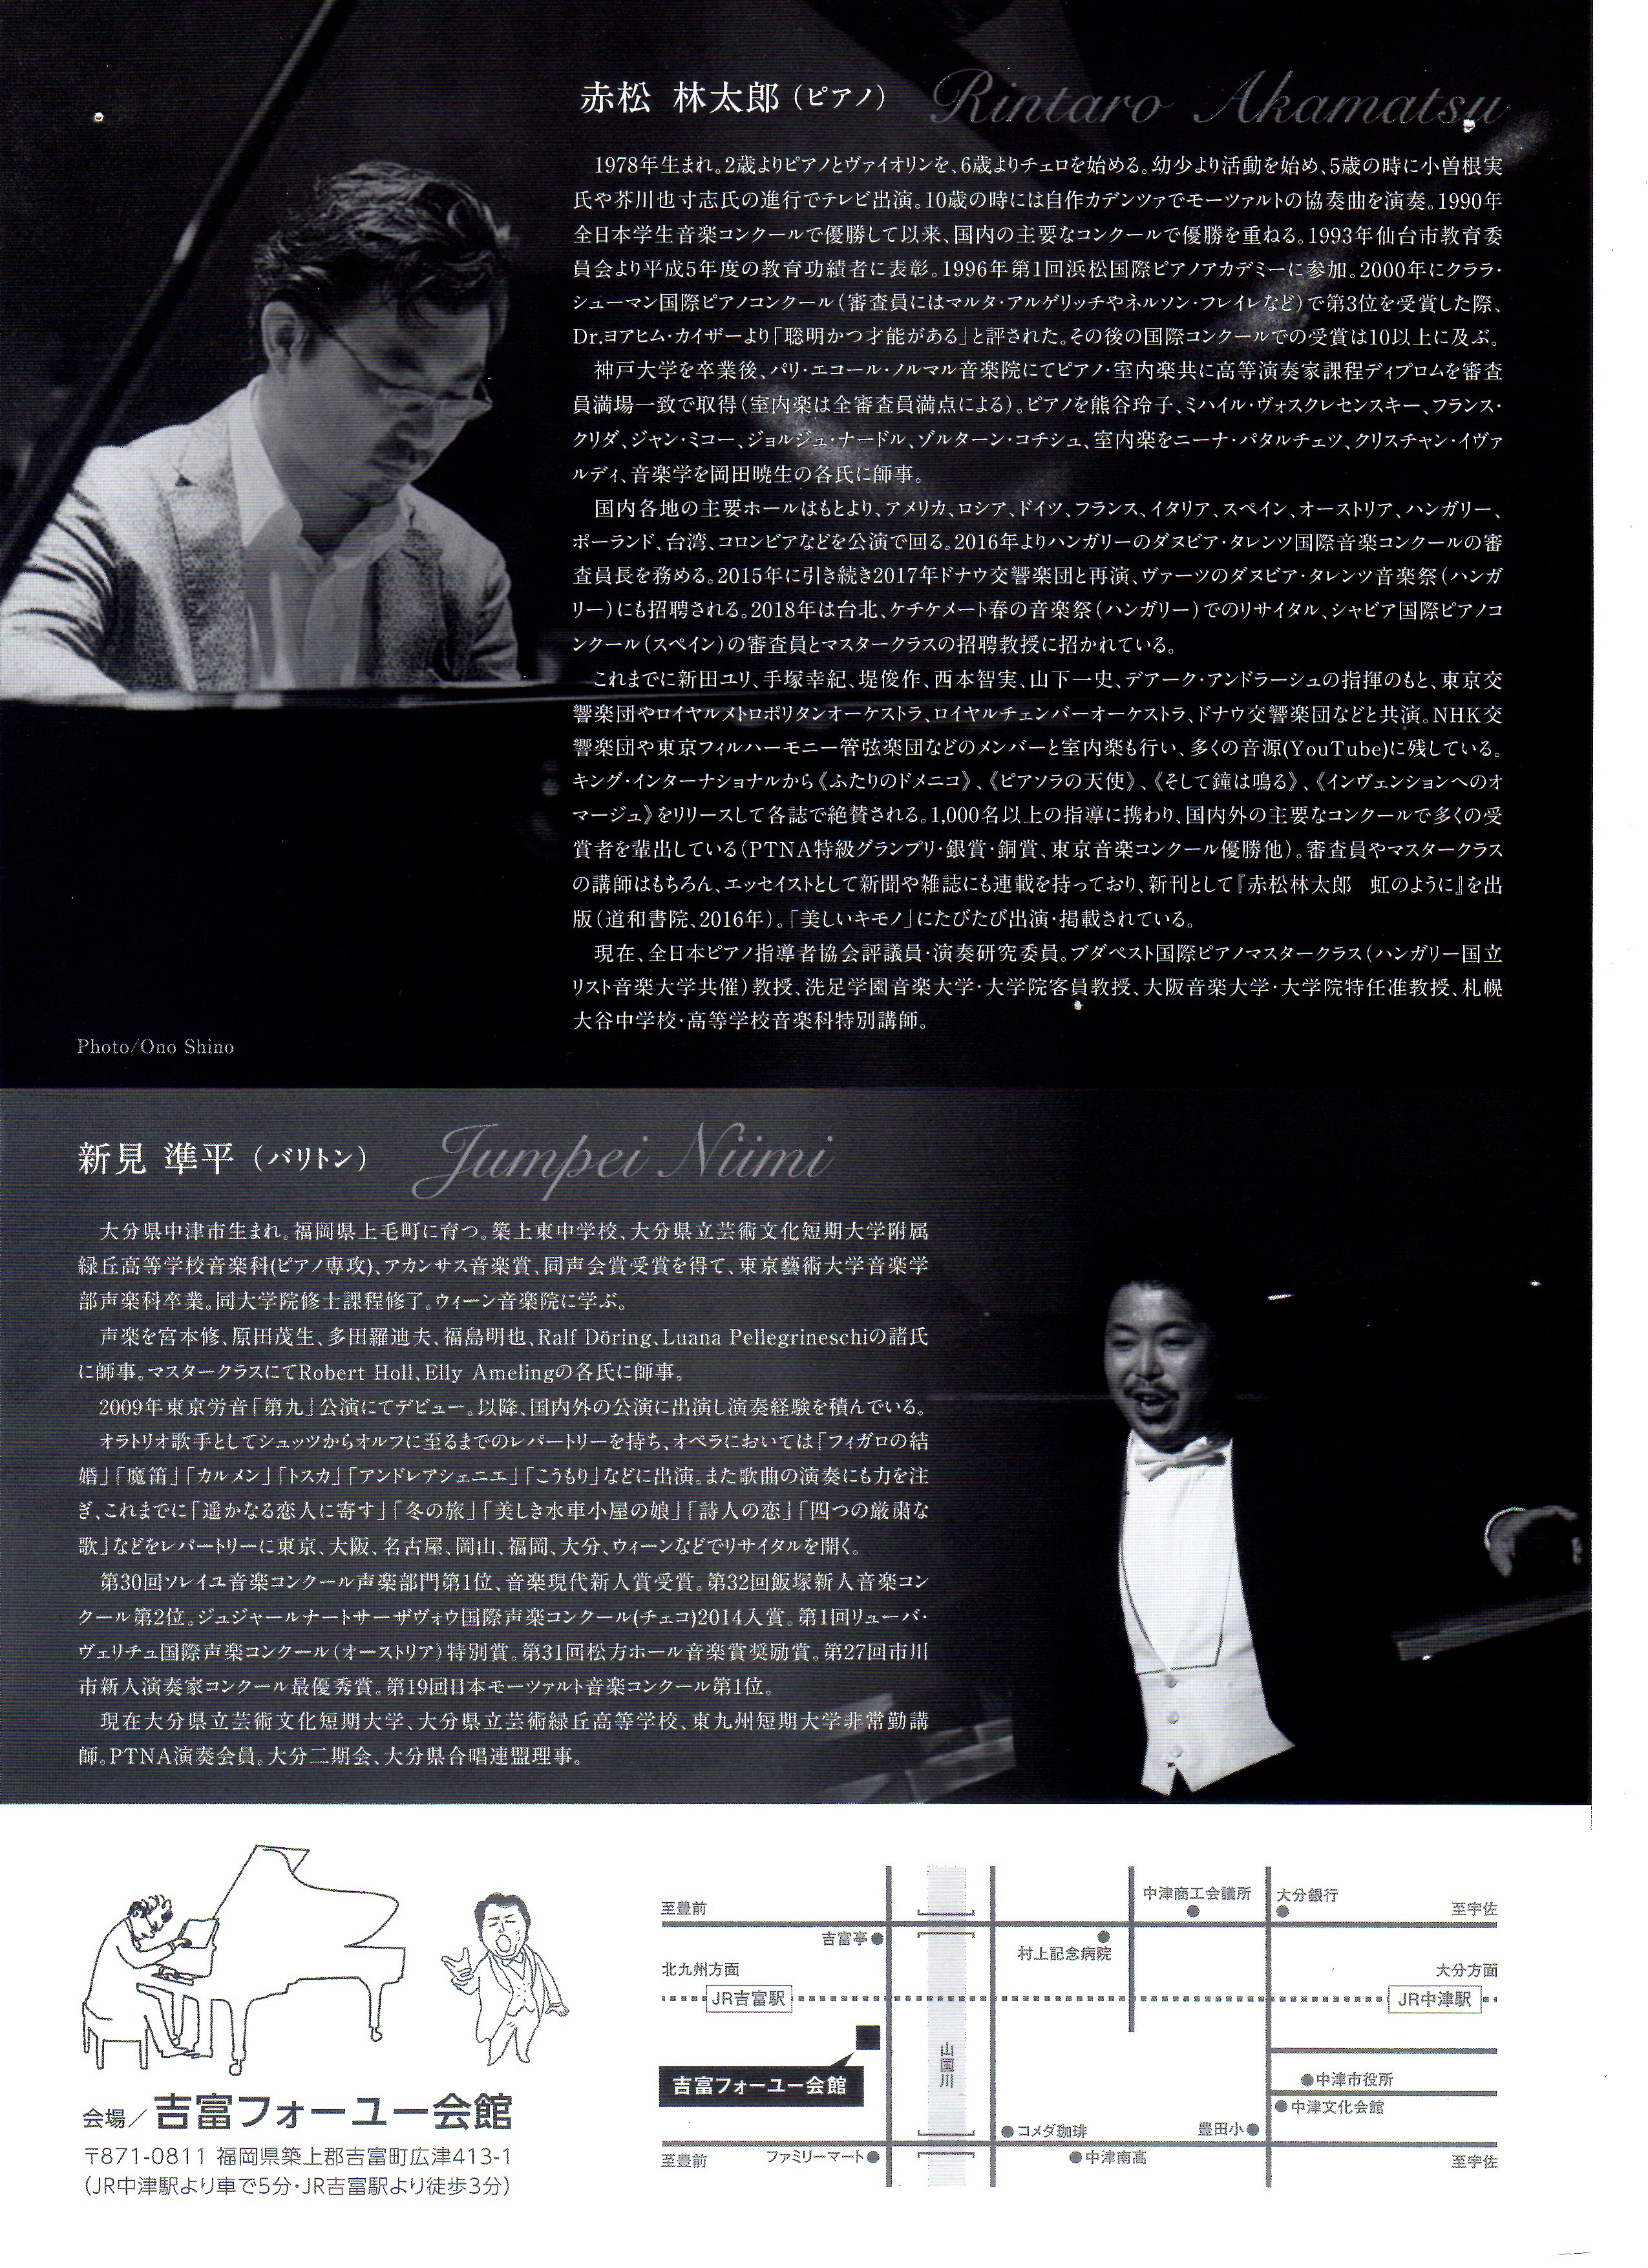 赤松 林太郎（ピアノ） Rintaro Akamatsu
1978年生まれ。2歳よりピアノとヴァイオリンを、6歳よりチェロを始める。幼少より活動を始め、5歳の時に小曽根実
氏や芥川也寸志氏の進行でテレビ出演。10歳の時には自作カデンツァでモーツァルトの協奏曲を演奏。1990年
全日本学生音楽コンクールで優勝して以来、国内の主要なコンクールで優勝を重ねる。1993年仙台市教育委
員会より平成5年度の教育功績者に表彰。1996年第1回浜松国際ピアノアカデミーに参加。2000年にクララ・
シューマン国際ピアノコンクール（審査員にはマルタ・アルゲリッチやネルソン・フレイレなど）で第3位を受賞した際、
Dr.ヨアヒム・カイザーより「聡明かつ才能がある」と評された。その後の国際コンクールでの受賞は10以上に及ぶ。
神戸大学を卒業後、パリ・エコール・ノルマル音楽院にてピアノ・室内楽共に高等演奏家課程ディプロムを審査
員満場一致で取得（室内楽は全審査員満点による）。ピアノを熊谷玲子、ミハイル・ヴォスクレセンスキー、フランス・
クリダ、ジャン・ミコー、ジョルジュ・ナードル、ゾルターン・コチシュ、室内楽をニーナ・パタルチェツ、クリスチャン・イヴァ
ルディ、音楽学を岡田暁生の各氏に師事。
国内各地の主要ホールはもとより、アメリカ、ロシア、ドイツ、フランス、イタリア、スペイン、オーストリア、ハンガリー、
ポーランド、台湾、コロンビアなどを公演で回る。2016年よりハンガリーのダヌビア・タレンツ国際音楽コンクールの審
査員長を務める。2015年に引き続き2017年ドナウ交響楽団と再演、ヴァーツのダヌビア・タレンツ音楽祭（ハンガ
リー）にも招聘される。2018年は台北、ケチケメート春の音楽祭（ハンガリー）でのリサイタル、シャビア国際ピアノコ
ンクール（スペイン）の審査員とマスタークラスの招聘教授に招かれている。
これまでに新田ユリ、手塚幸紀、堤俊作、西本智実、山下一史、デアーク・アンドラーシュの指揮のもと、東京交
響楽団やロイヤルメトロポリタンオーケストラ、ロイヤルチェンバーオーケストラ、ドナウ交響楽団などと共演。NHK交
響楽団や東京フィルハーモニー管弦楽団などのメンバーと室内楽も行い、多くの音源(YouTube)に残している。
キング・インターナショナルから《ふたりのドメニコ》、《ピアソラの天使》、《そして鐘は鳴る》、《インヴェンションへのオ
マージュ》をリリースして各誌で絶賛される。1,000名以上の指導に携わり、国内外の主要なコンクールで多くの受
賞者を輩出している（PTNA特級グランプリ・銀賞・銅賞、東京音楽コンクール優勝他）。審査員やマスタークラス
の講師はもちろん、エッセイストとして新聞や雑誌にも連載を持っており、新刊として『赤松林太郎　虹のように』を出
版（道和書院、2016年）。「美しいキモノ」にたびたび出演・掲載されている。
現在、全日本ピアノ指導者協会評議員・演奏研究委員。ブダペスト国際ピアノマスタークラス（ハンガリー国立
リスト音楽大学共催）教授、洗足学園音楽大学・大学院客員教授、大阪音楽大学・大学院特任准教授、札幌
大谷中学校・高等学校音楽科特別講師。
Photo/Ono Shino
新見 準平（バリトン） Jumpei Niimi
大分県中津市生まれ。福岡県上毛町に育つ。築上東中学校、大分県立芸術文化短期大学附属
緑丘高等学校音楽科(ピアノ専攻)、アカンサス音楽賞、同声会賞受賞を得て、東京藝術大学音楽学
部声楽科卒業。同大学院修士課程修了。ウィーン音楽院に学ぶ。
声楽を宮本修、原田茂生、多田羅迪夫、福島明也、Ralf Döring、Luana Pellegrineschiの諸氏
に師事。マスタークラスにてRobert Holl、Elly Amelingの各氏に師事。
2009年東京労音「第九」公演にてデビュー。以降、国内外の公演に出演し演奏経験を積んでいる。
オラトリオ歌手としてシュッツからオルフに至るまでのレパートリーを持ち、オペラにおいては「フィガロの結
婚」「魔笛」「カルメン」「トスカ」「アンドレアシェニエ」「こうもり」などに出演。また歌曲の演奏にも力を注
ぎ、これまでに「遥かなる恋人に寄す」「冬の旅」「美しき水車小屋の娘」「詩人の恋」「四つの厳粛な
歌」などをレパートリーに東京、大阪、名古屋、岡山、福岡、大分、ウィーンなどでリサイタルを開く。
第30回ソレイユ音楽コンクール声楽部門第1位、音楽現代新人賞受賞。第32回飯塚新人音楽コン
クール第2位。ジュジャールナートサーザヴォウ国際声楽コンクール(チェコ)2014入賞。第1回リューバ・
ヴェリチュ国際声楽コンクール（オーストリア）特別賞。第31回松方ホール音楽賞奨励賞。第27回市川
市新人演奏家コンクール最優秀賞。第19回日本モーツァルト音楽コンクール第1位。
現在大分県立芸術文化短期大学、大分県立芸術緑丘高等学校、東九州短期大学非常勤講
師。PTNA演奏会員。大分二期会、大分県合唱連盟理事。
会場／吉富フォーユー会館
〒871-0811 福岡県築上郡吉富町広津413-1
（JR中津駅より車で5分・JR吉富駅より徒歩3分）
至豊前
中津商工会議所
大分銀行
至宇佐
吉富亭
村上記念病院
北九州方面
大分方面
JR吉富駅
JR中津駅
山国川
吉富フォーユー会館
中津市役所
中津文化会館
コメダ珈琲
豊田小
至豊前
ファミリーマート
中津南高
至宇佐